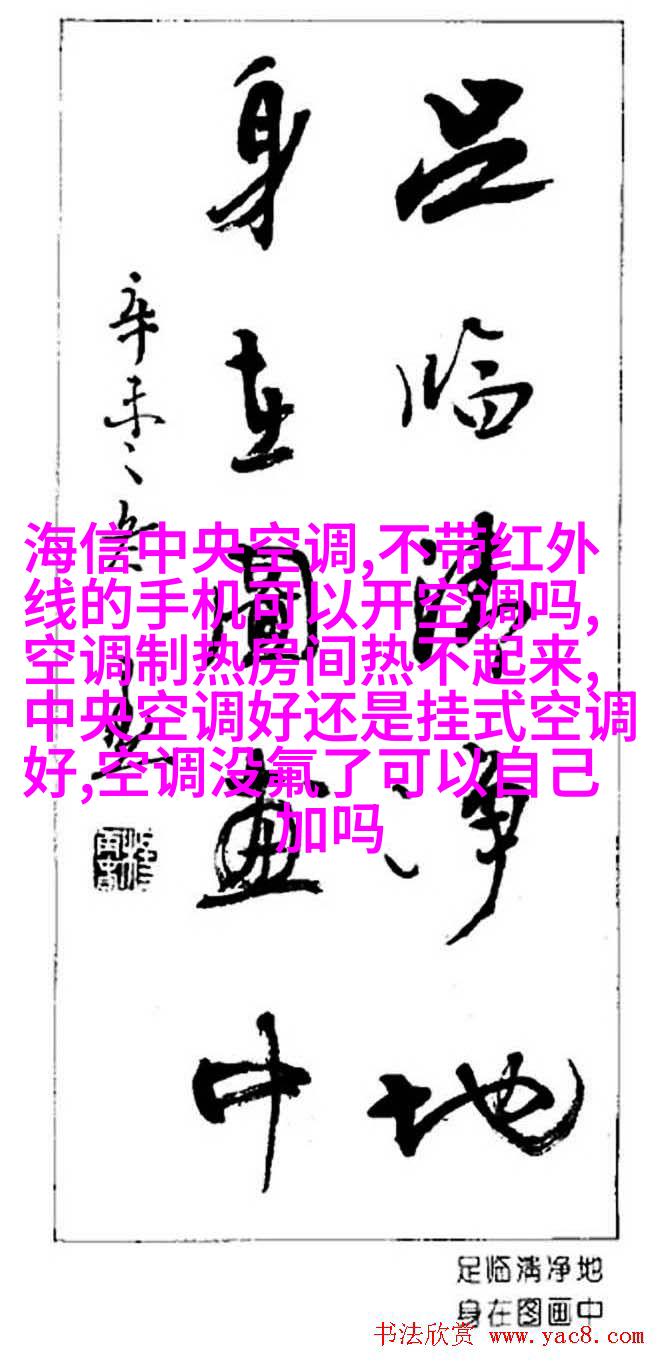 足临清净地
身在图画中
辛未之
海信中央空调,不带红外
线的手机可以开空调吗,
空调制热房间热不起来,
中央空调好还是挂式空调
好,空调没氟了可以自己
加吗
足临清净地
身在图画中
书法欣赏 www.yac8.com